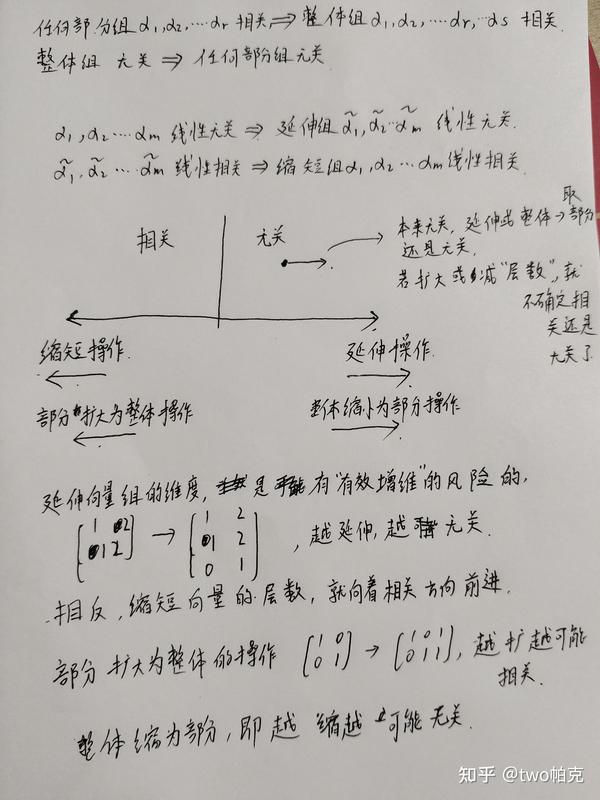 任何部分组 α1,α2,····αr 相关 ⇒ 整体组 α1,α2,····αr,··αs 相关.
整体组 无关 ⇒ 任何部分组无关
α1,α2····αm 线性无关 ⇒ 延伸组 α̃1,α̃2··α̃m 线性无关.
α̃1,α̃2····α̃m 线性相关 ⇒ 缩短组α1,α2···αm线性相关
相关 无关
本来无关, 延伸或整体→取部分
还是无关.
若扩大或减"层数", 就
不确定相
关还是
无关了
缩短操作. 延伸操作.
部分扩大为整体操作 整体缩小为部分操作
延伸向量组的维度, 是有"有效增维"的风险的,
[1 2
1 2] → [1 2
1 2
0 1] , 越延伸, 越无关.
相反, 缩短向量的层数, 就向着相关方向前进.
部分扩大为整体的操作 [1 0
0 1] → [1 0 1
0 1 1], 越扩越可能
相关.
整体缩为部分, 即越缩越可能无关.
知乎 @two帕克